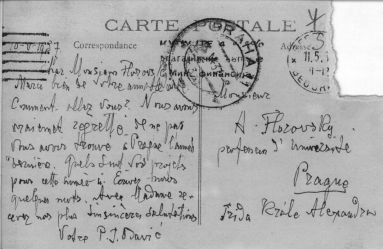 CARTE POSTALE
Correspondance
Cher Monsieur Florovsky
Merci bien de votre
Comment allez vous? Nous avons
vraiment regretté de ne pas
vous avoir trouvé à Prague l'année
dernière. Quels sont vos projets
pour cette année? Ecrivez nous
quelques mots. Avec Madame re-
cevez nos plus sincères salutations
Votre P. J.
Monsieur
A. Florovsky
professeur d'Université
Prague
třída Krále Alexandra